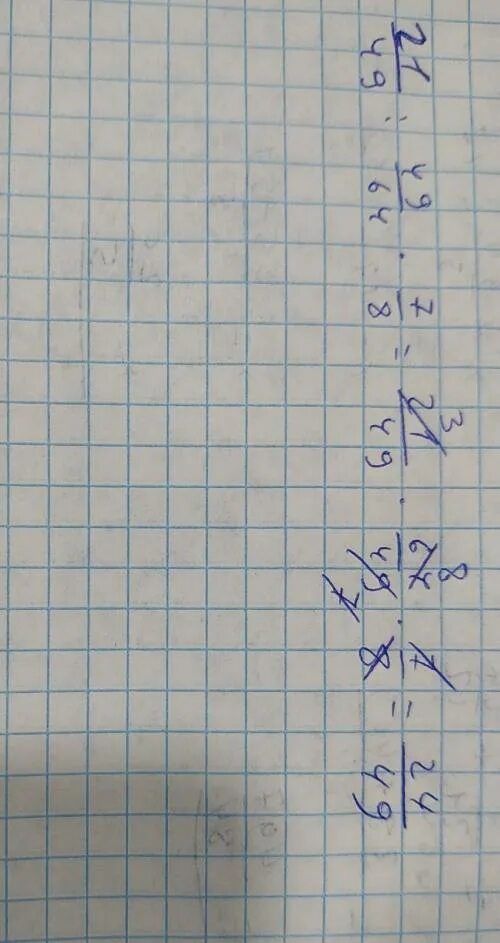 21/49 : 49/64 · 7/8 = 21/49 3 · 64/49 8 7 · 7/8 = 24/49